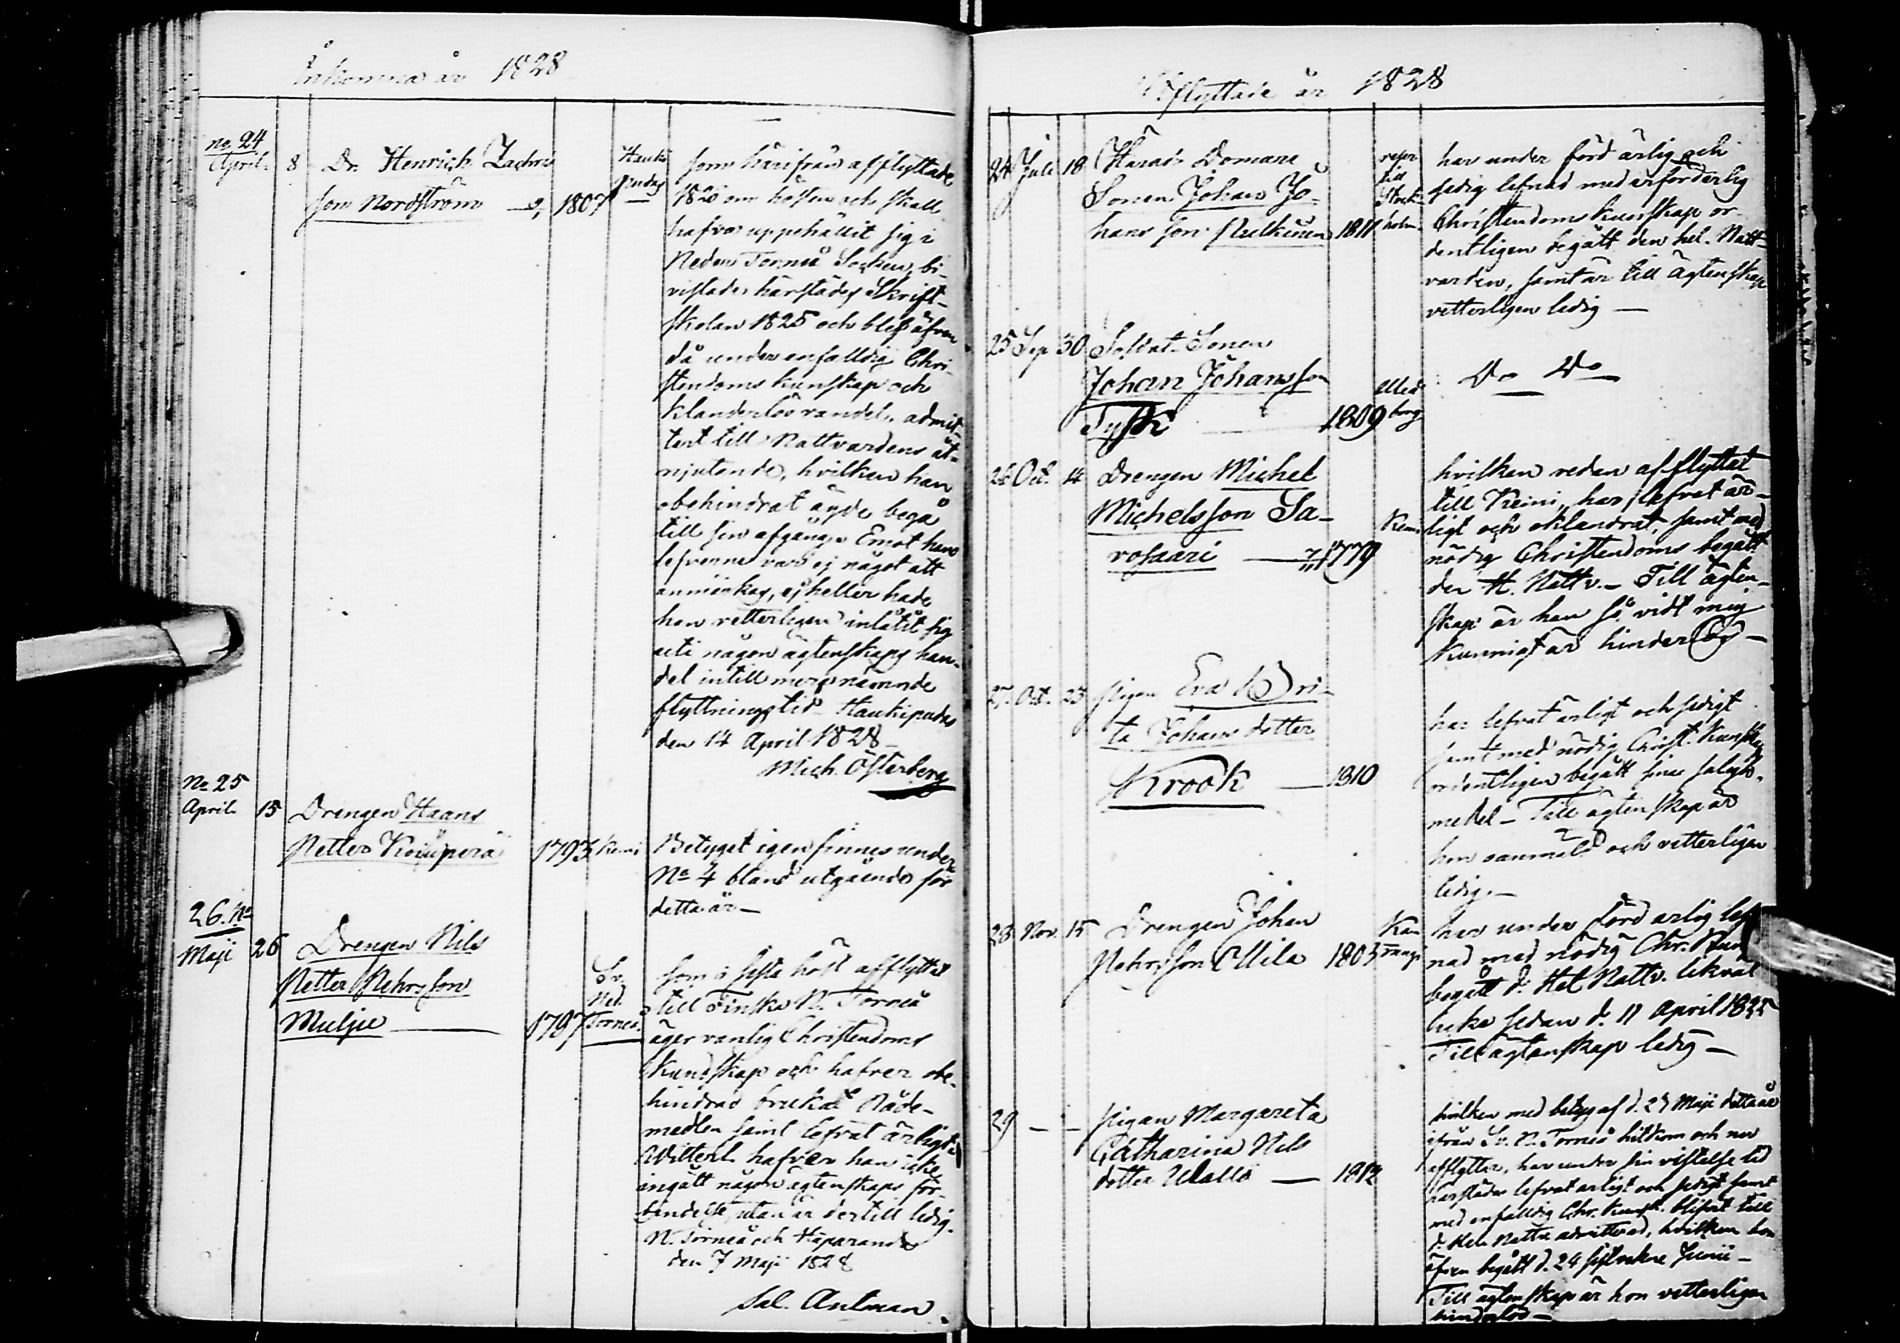 Ankomna år 1828
No 24
April. 8 Dr. Henrich Zachris
son Nordström 1807
Hauki
pudas
som härifrån afflyttade
1826 om hösten och skall
hafva uppehållit sig i
Neder Torneå Socken, bi-
vistade härstädes Skrift-
skolan 1825 och blef äfven
då under enfalldig Chri-
stendoms kunskap och
klanderlös vandel, admit-
tert till Nattvardens åt-
njutande, hvilken han
obehindrat ägde begå
till sin afgång. Emot hans
lefverne var ej något att
anmärka, ej heller hade
han vetterligen inlåtit sig
uti någon ägtenskaps han-
del intill merginämnde
flyttningstid. Haukipudas
den 14 April 1828
Mich. Österberg
No 25
April 15 Drengen Haans
Petter 1793 Kemi
Betyget igen finnes under
No 4 bland utgående för
detta år—
26. No
Maji 26 Drengen Nils
Petter Pehrsson
Mulju — 1797
Sv.
Ned.
Torneå
som i sista höst afflyttat
till Finska N. Torneå
äger vanlig Christendoms
Kundskap och hafver obe-
hindrad brukat Nåde-
medlen samt lefvat ärligt.
Witterl. hafver han icke
ingått någon ägtenskaps för
bindelse, utan är dertill ledig.
N. Torneå och Haparanda
den 7 Maji 1828
Sal. Antman
Utflyttade år 1828
24 Juli 18 Härads Domare
Sonen Johan Jo-
hans son Pulkinen 1811
resor
till
Stock-
holm
har under förd ärlig och
sedig lefnad med erforderlig
Christendoms kunskap or-
dentligen begått den hel. Natt-
varden, samt är till ägtenskap
vetterligen ledig —
25 Sep 30 Soldat Sonen
Johan Johansson
Tysk — 1809
Uleå
borg
Do Do
26 Oct. 14 Drengen Michel
Michelsson Sa-
rosaari — 1779
Kemi
hvilken redan afflyttat
till Kemi, har lefvat är-
ligt och oklandrat, samt med
nödig Christendoms begått
den H. Nattv. — Till ägten-
skap är han så vidt mig
kunnigt är hinderlös —
27. Oct. 23 Pigan Eva Bri-
ta Johans dotter
Krook — 1810
har lefvat ärligt och sedigt
samt med nödig Christ. Kunsk.
ordentligen begått sine saligh.
medel — Till ägtenskap är
hon oanmäld och vetterligen
ledig. —
28 Nov. 15 Drengen Johan
Pehrsson Ollila 1803
har under förd ärlig lef-
nad med nödig Chr. Kun
begått d. Hel. Nattv.
sedan d. 11 April
Till ägtenskap ledig —
29 — — Pigan Margareta
Catharina Nils
dotter — 1812
hvilken med betyg af d. 27 Maji detta år
ifrån Sv. N. Torneå hitkom och nu
afflyttar, har under sin vistelse tid
härstädes lefvat ärligt och sedigt samt
med enfalldig Chr. Kunsk. blifvit till
d. Hel. Nattv. admitterad, hvilken hon
äfven begått d. 24 sistvekne Junii —
Till ägtenskap är hon vetterligen
hinderlös —